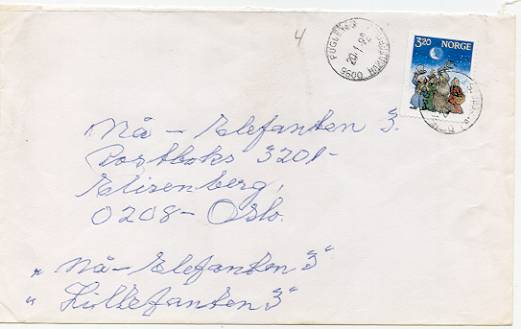 4
FUGLENES
20.1.92
9600
3.20 NORGE
Nå - Elefanten 3.
Postboks 3201-
Elisenberg,
0208- Oslo.
" Nå-Elefanten 3"
" Lillefanten 3"